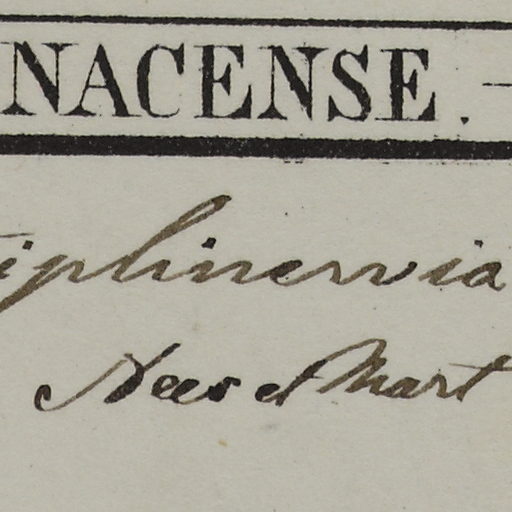 NACENSE.
iplinervia
Nees et Mart